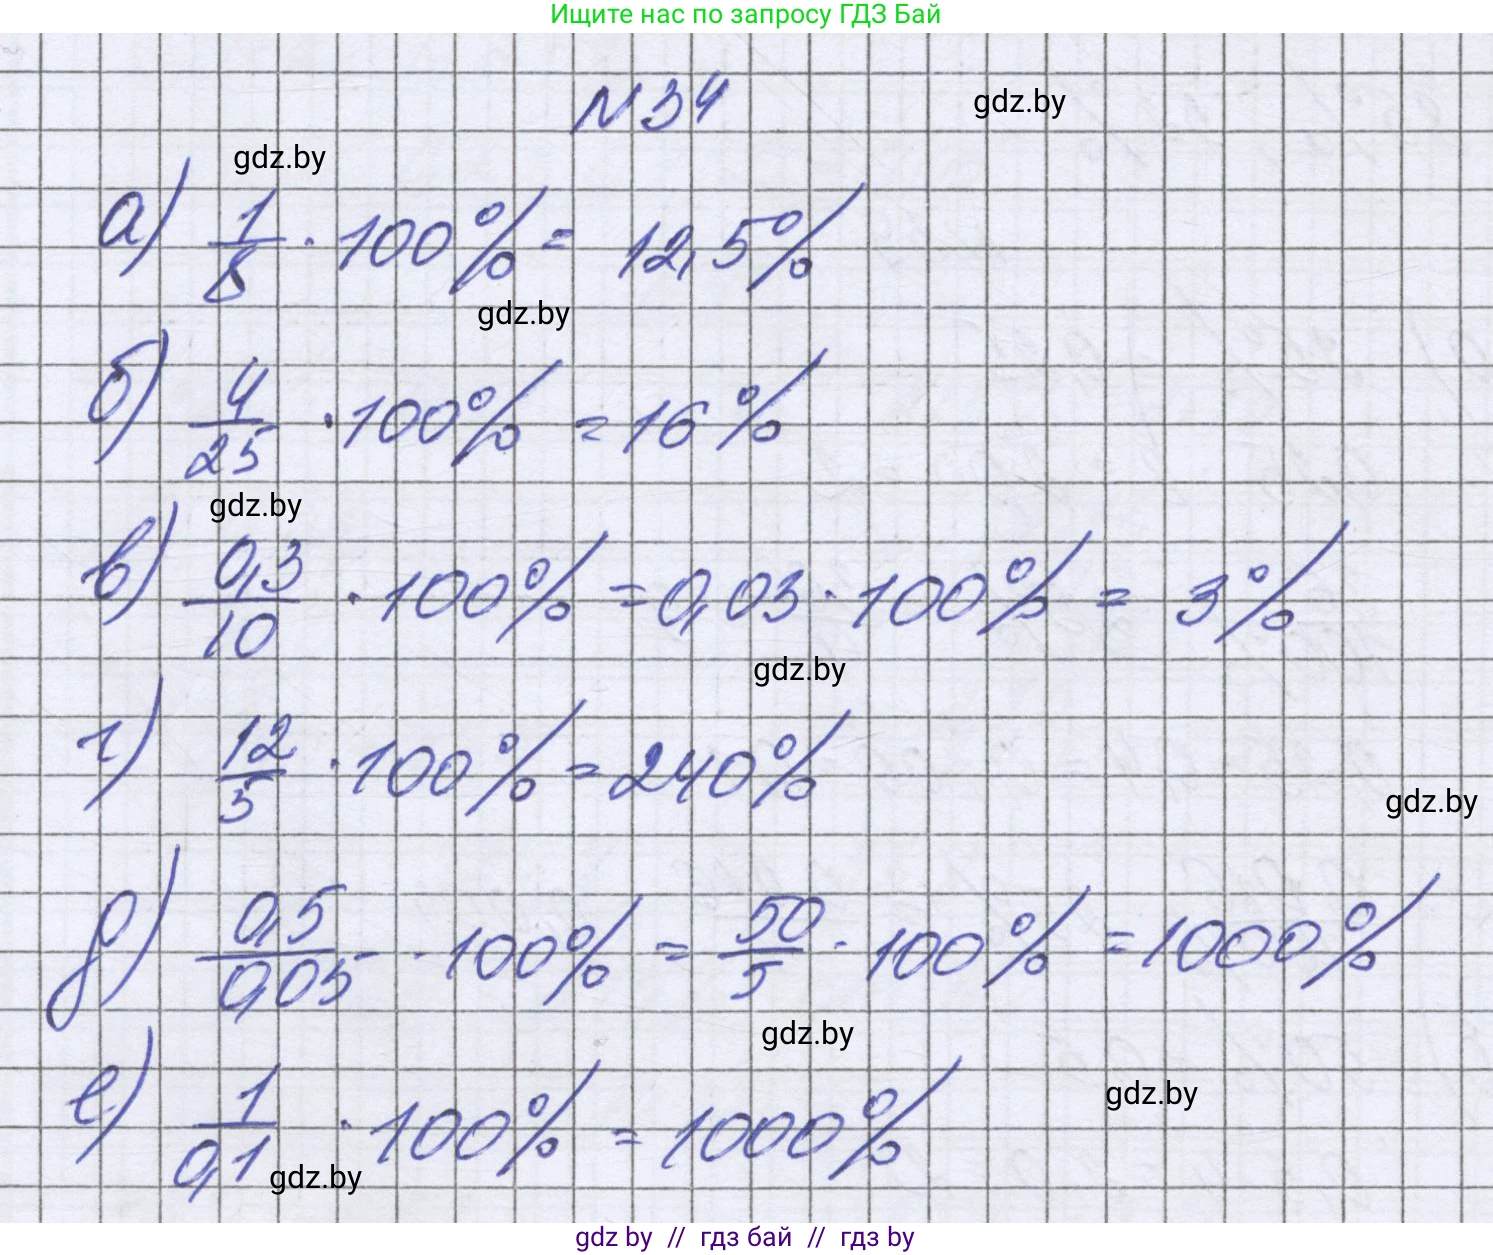 Ищите нас по запросу ГДЗ Бай
N34
gdz.by
gdz.by
а) 1/8 · 100% = 12,5%
gdz.by
б) 4/25 · 100% = 16%
gdz.by
в) 0,3/10 · 100% = 0,03 · 100% = 3%
gdz.by
г) 12/5 · 100% = 240%
gdz.by
д) 0,5/0,05 · 100% = 50/5 · 100% = 1000%
gdz.by
gdz.by
е) 1/0,1 · 100% = 1000%
gdz.by
gdz by // гдз бай // гдз by